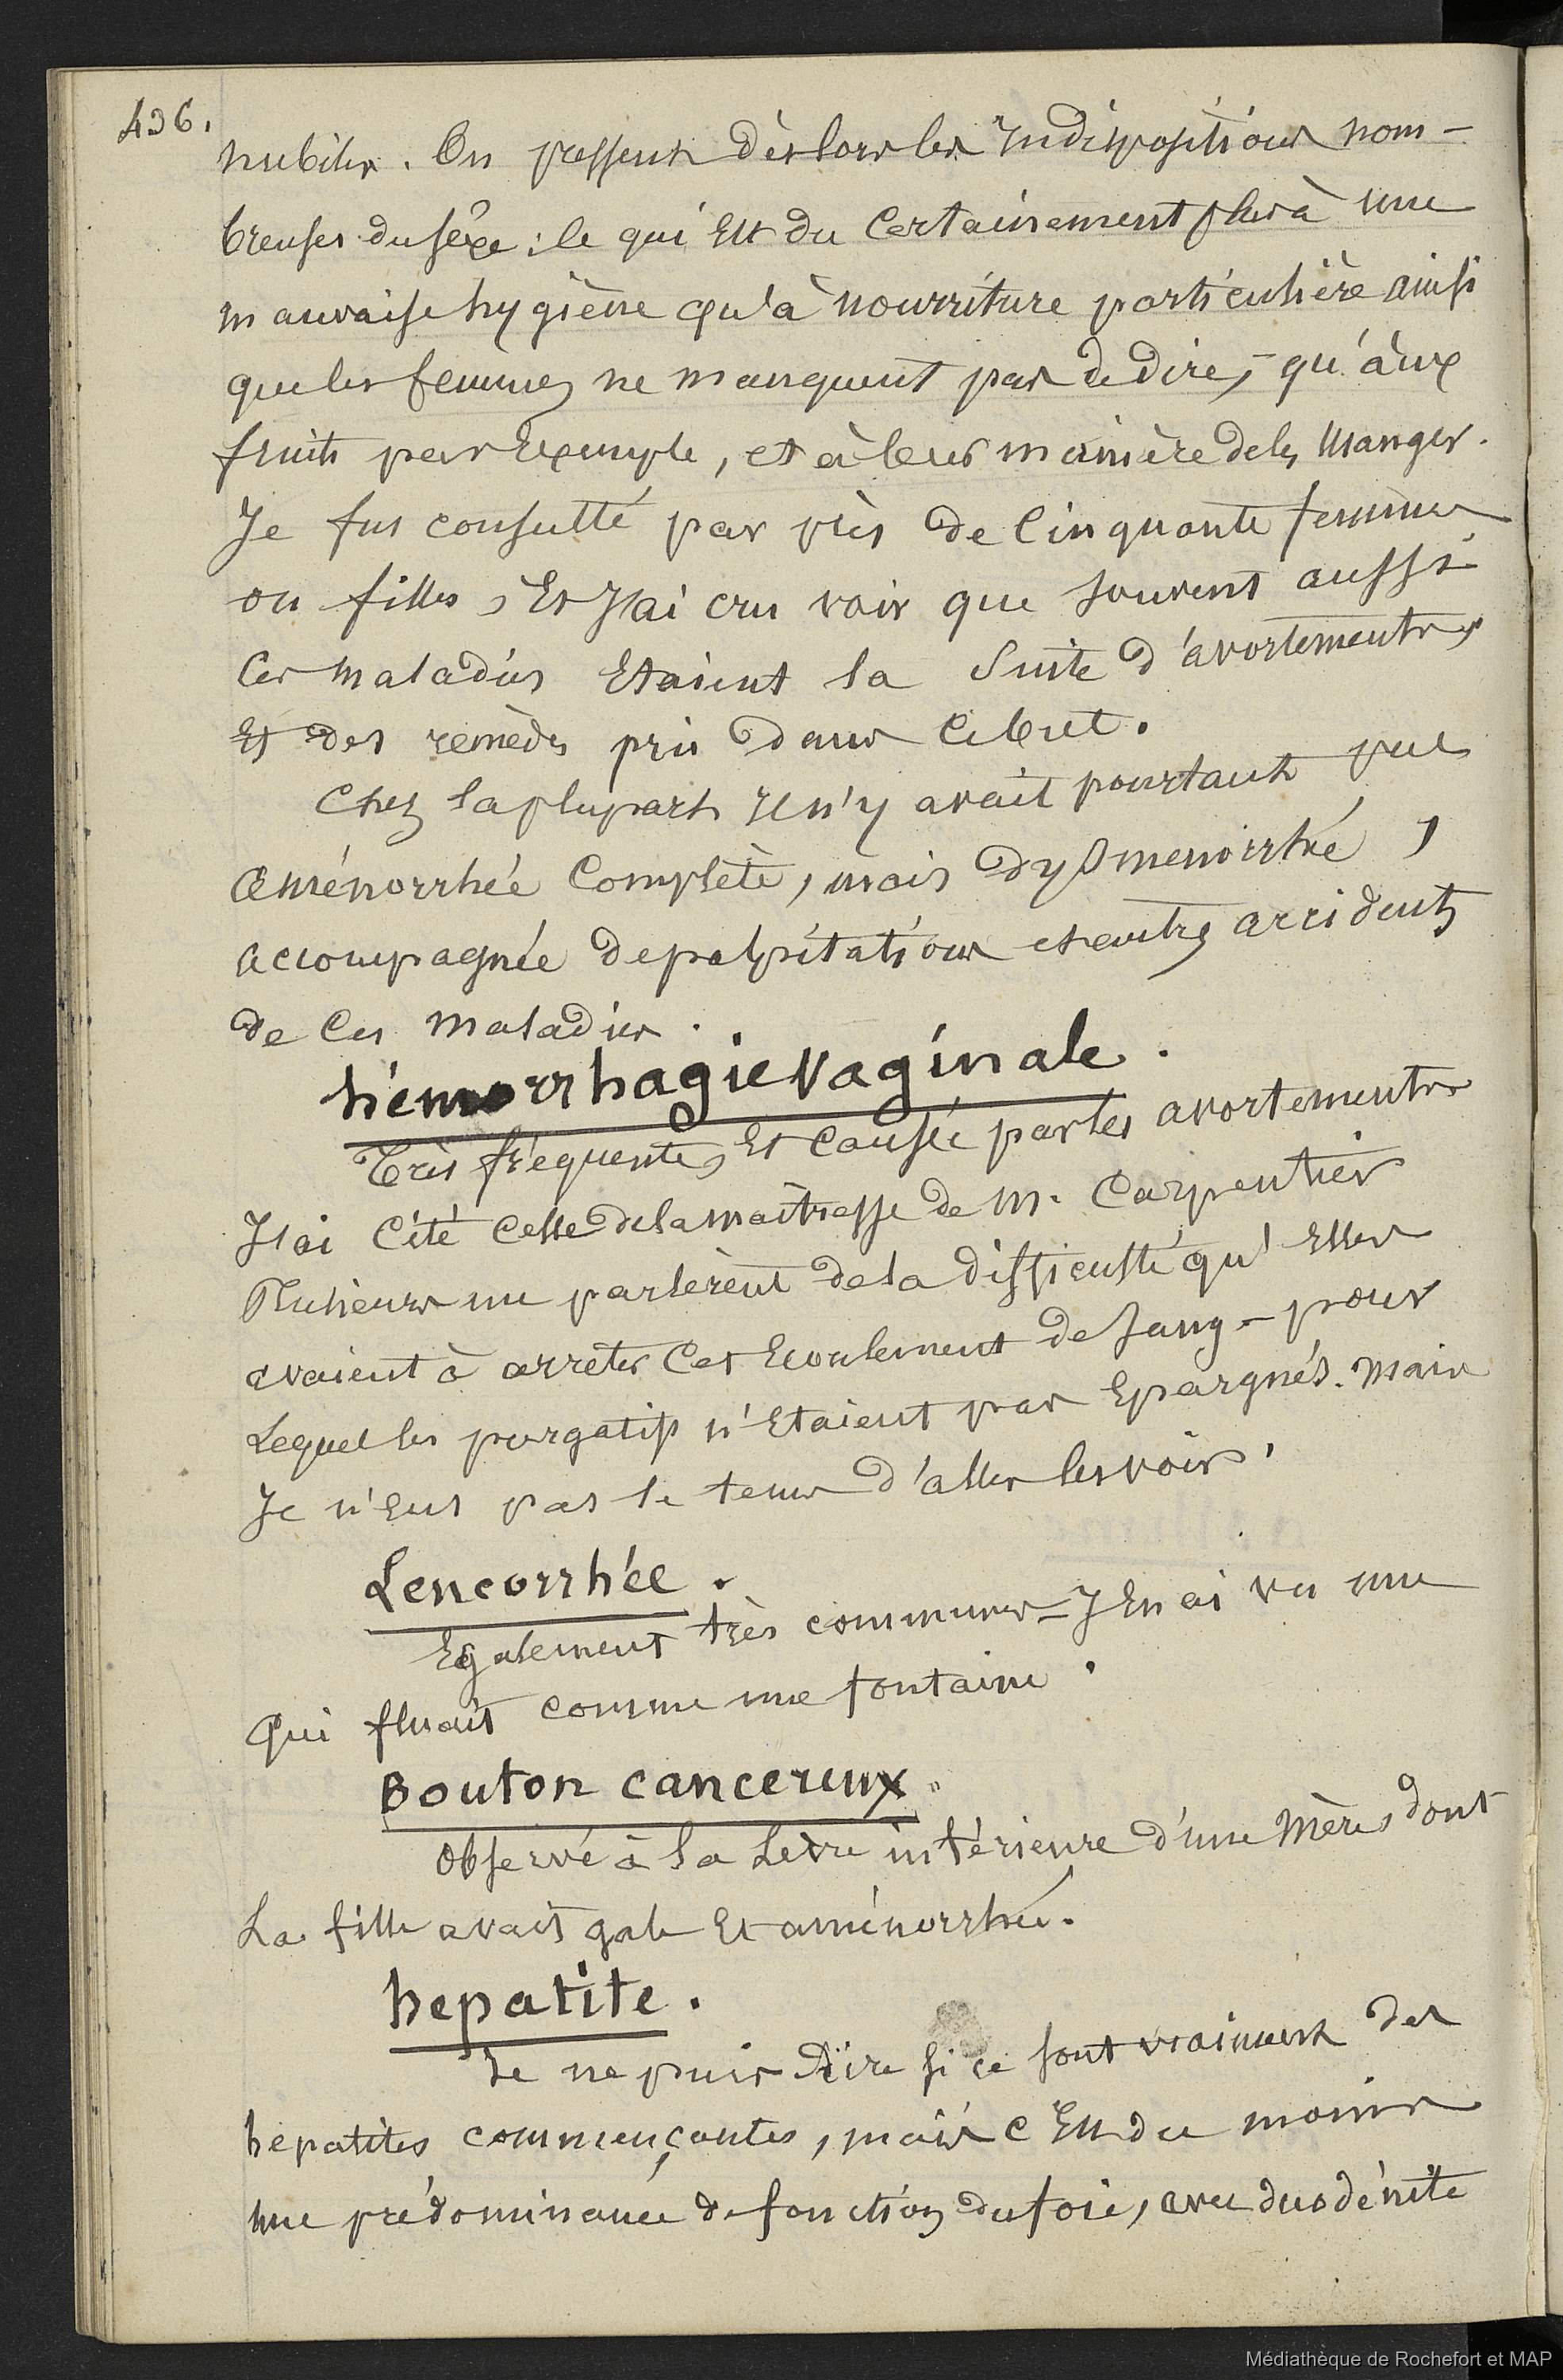 436.
nubiles. On pressent dès lors les Indispositions nom-
breuses du sêxe ; ce qui Est du Certainement plus à une
mauvaise hygiène qu'à nourriture particulière ainsi
que les femmes ne manquent pas de dire, - qu'aux
fruits par Exemple, et à leur manière de les Manger.
Je fus consulté par près de Cinquante femmes
ou filles, Et J'ai cru voir que souvent aussi
Ces maladies Etaient la Suite d'avortements,
Et des remèdes pris dans Ce but.
Chez la plupart Il n'y avait pourtant pas
aménorrhée Complète, mais dysmenorrhée,
accompagnée de palpitations et autres accidents
de Ces maladies.
hémorrhagie vaginale.
Très fréquente, Et Causée par les avortements
J'ai Cité Celle de la maîtresse de M. Carpentier
Plusieurs me parlèrent de la difficulté qu'Elles
avaient à arrêter Cet Ecoulement de sang - pour
Lequel les purgatifs n'Etaient pas Epargnés. Mais
Je n'Eus pas le tems d'aller les voir.
Leucorrhée.
Egalement très communes - J'En ai vu une
Qui fluait comme une fontaine.
Bouton cancereux.
Observé à la Levre intérieure d'une Mère, dont
La fille avait gale Et aménorrhée.
hepatite.
Je ne puis dire si ce sont vraiment des
hepatites commençantes, mais c'Est du moins
une prédominance de fonction du foie, avec duodénite
Médiathèque de Rochefort et MAP